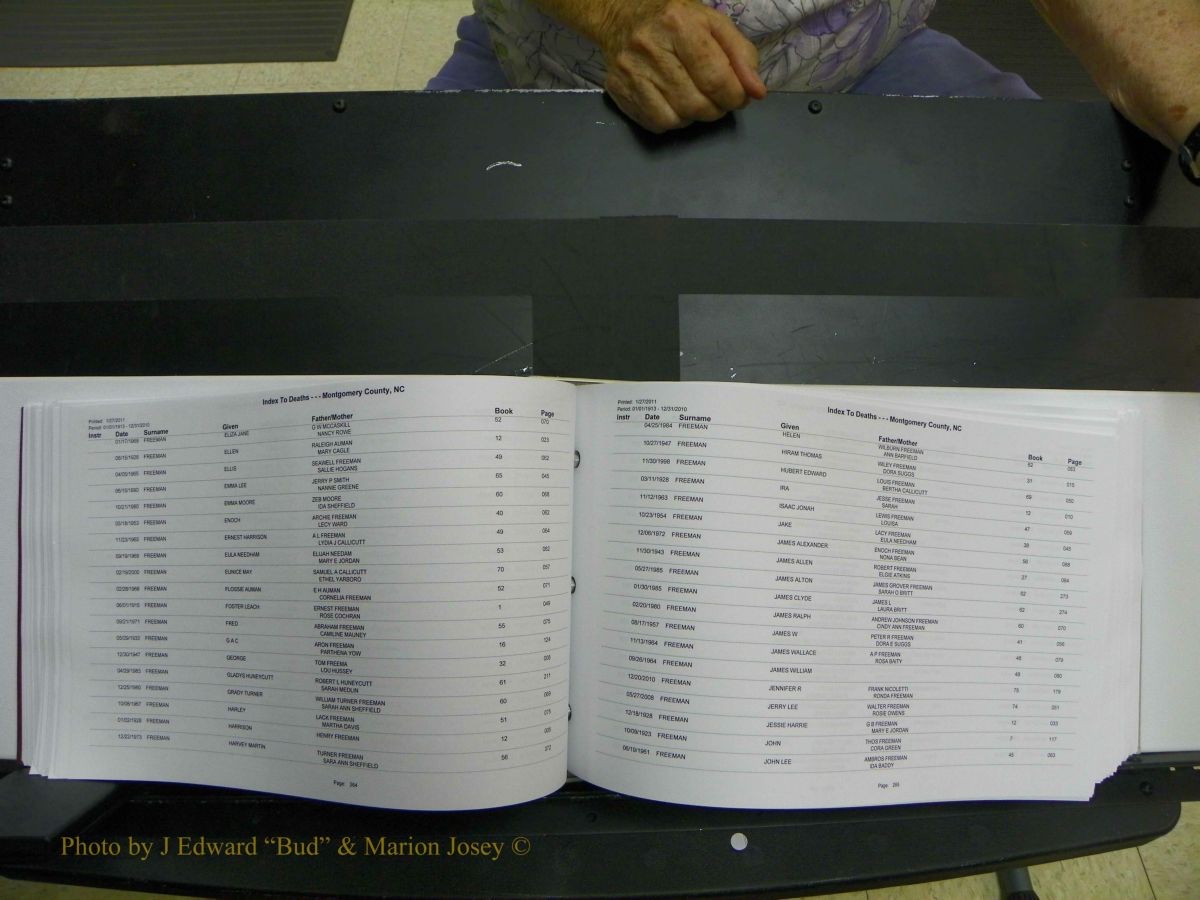 Index To Deaths - - - Montgomery County, NC
Printed: 1/27/2011
Period: 01/01/1913 - 12/31/2010
Instr Date Surname Given Father/Mother Book Page
01/17/1969 FREEMAN ELIZA JANE G W MCCASKILL 52 070
NANCY ROWE
06/15/1928 FREEMAN ELLEN RALEIGH AUMAN 12 023
MARY CAGLE
04/09/1965 FREEMAN ELLIS SEAWELL FREEMAN 49 062
SALLIE HOGANS
FREEMAN EMMA LEE JERRY P SMITH 65 045
NANNIE GREENE
10/21/1980 FREEMAN EMMA MOORE ZEB MOORE 60 068
IDA SHEFFIELD
03/18/1953 FREEMAN ENOCH ARCHIE FREEMAN 40 062
LECY WARD
11/23/1963 FREEMAN ERNEST HARRISON A L FREEMAN 49 064
LYDIA J CALLICUTT
09/19/1969 FREEMAN EULA NEEDHAM ELIJAH NEEDAM 53 052
MARY E JORDAN
02/19/2000 FREEMAN EUNICE MAY SAMUEL A CALLICUTT 70 057
ETHEL YARBORO
02/28/1968 FREEMAN FLOSSIE AUMAN E H AUMAN 52 071
CORNELIA FREEMAN
06/01/1915 FREEMAN FOSTER LEACH ERNEST FREEMAN 1 049
ROSE COCHRAN
09/21/1971 FREEMAN FRED ABRAHAM FREEMAN 55 075
CAMILINE MAUNEY
05/29/1932 FREEMAN G A C ARON FREEMAN 16 124
PARTHENA YOW
12/30/1947 FREEMAN GEORGE TOM FREEMA 32 008
LOU HUSSEY
04/29/1983 FREEMAN GLADYS HUNEYCUTT ROBERT L HUNEYCUTT 61 211
SARAH MEDLIN
12/25/1980 FREEMAN GRADY TURNER WILLIAM TURNER FREEMAN 60 069
SARAH ANN SHEFFIELD
10/08/1967 FREEMAN HARLEY LACK FREEMAN 51 075
MARTHA DAVIS
01/02/1928 FREEMAN HARRISON HENRY FREEMAN 12 005
12/22/1973 FREEMAN HARVEY MARTIN TURNER FREEMAN 56 372
SARA ANN SHEFFIELD
Page: 264
Printed: 1/27/2011
Period: 01/01/1913 - 12/31/2010
Index To Deaths - - - Montgomery County, NC
Instr Date Surname Given Father/Mother Book Page
04/25/1984 FREEMAN HELEN WILBURN FREEMAN 62 063
ANN BARFIELD
10/27/1947 FREEMAN HIRAM THOMAS WILEY FREEMAN 31 015
DORA SUGGS
11/30/1998 FREEMAN HUBERT EDWARD LOUIS FREEMAN 69 050
BERTHA CALLICUTT
03/11/1928 FREEMAN IRA JESSE FREEMAN 12 010
SARAH
11/12/1963 FREEMAN ISAAC JONAH LEWIS FREEMAN 47 059
LOUISA
10/23/1954 FREEMAN JAKE LACY FREEMAN 38 045
EULA NEEDHAM
12/06/1972 FREEMAN JAMES ALEXANDER ENOCH FREEMAN 56 088
NONA BEAN
11/30/1943 FREEMAN JAMES ALLEN ROBERT FREEMAN 27 084
ELSIE ATKINS
05/27/1985 FREEMAN JAMES ALTON JAMES GROVER FREEMAN 62 273
SARAH O BRITT
01/30/1985 FREEMAN JAMES CLYDE JAMES L 62 274
LAURA BRITT
02/20/1980 FREEMAN JAMES RALPH ANDREW JOHNSON FREEMAN 60 070
CINDY ANN FREEMAN
08/17/1957 FREEMAN JAMES W PETER R FREEMAN 41 056
DORA E SUGGS
11/13/1964 FREEMAN JAMES WALLACE A P FREEMAN 48 079
ROSA BAITY
09/26/1964 FREEMAN JAMES WILLIAM 48 080
12/20/2010 FREEMAN JENNIFER R FRANK NICOLETTI 75 179
RONDA FREEMAN
05/27/2008 FREEMAN JERRY LEE WALTER FREEMAN 74 051
ROSIE OWENS
12/18/1928 FREEMAN JESSIE HARRIE G B FREEMAN 12 033
MARY E JORDAN
10/09/1923 FREEMAN JOHN THOS FREEMAN 7 117
CORA GREEN
06/19/1961 FREEMAN JOHN LEE AMBROS FREEMAN 45 063
IDA BADDY
Page: 265
Photo by J Edward “Bud” & Marion Josey ©